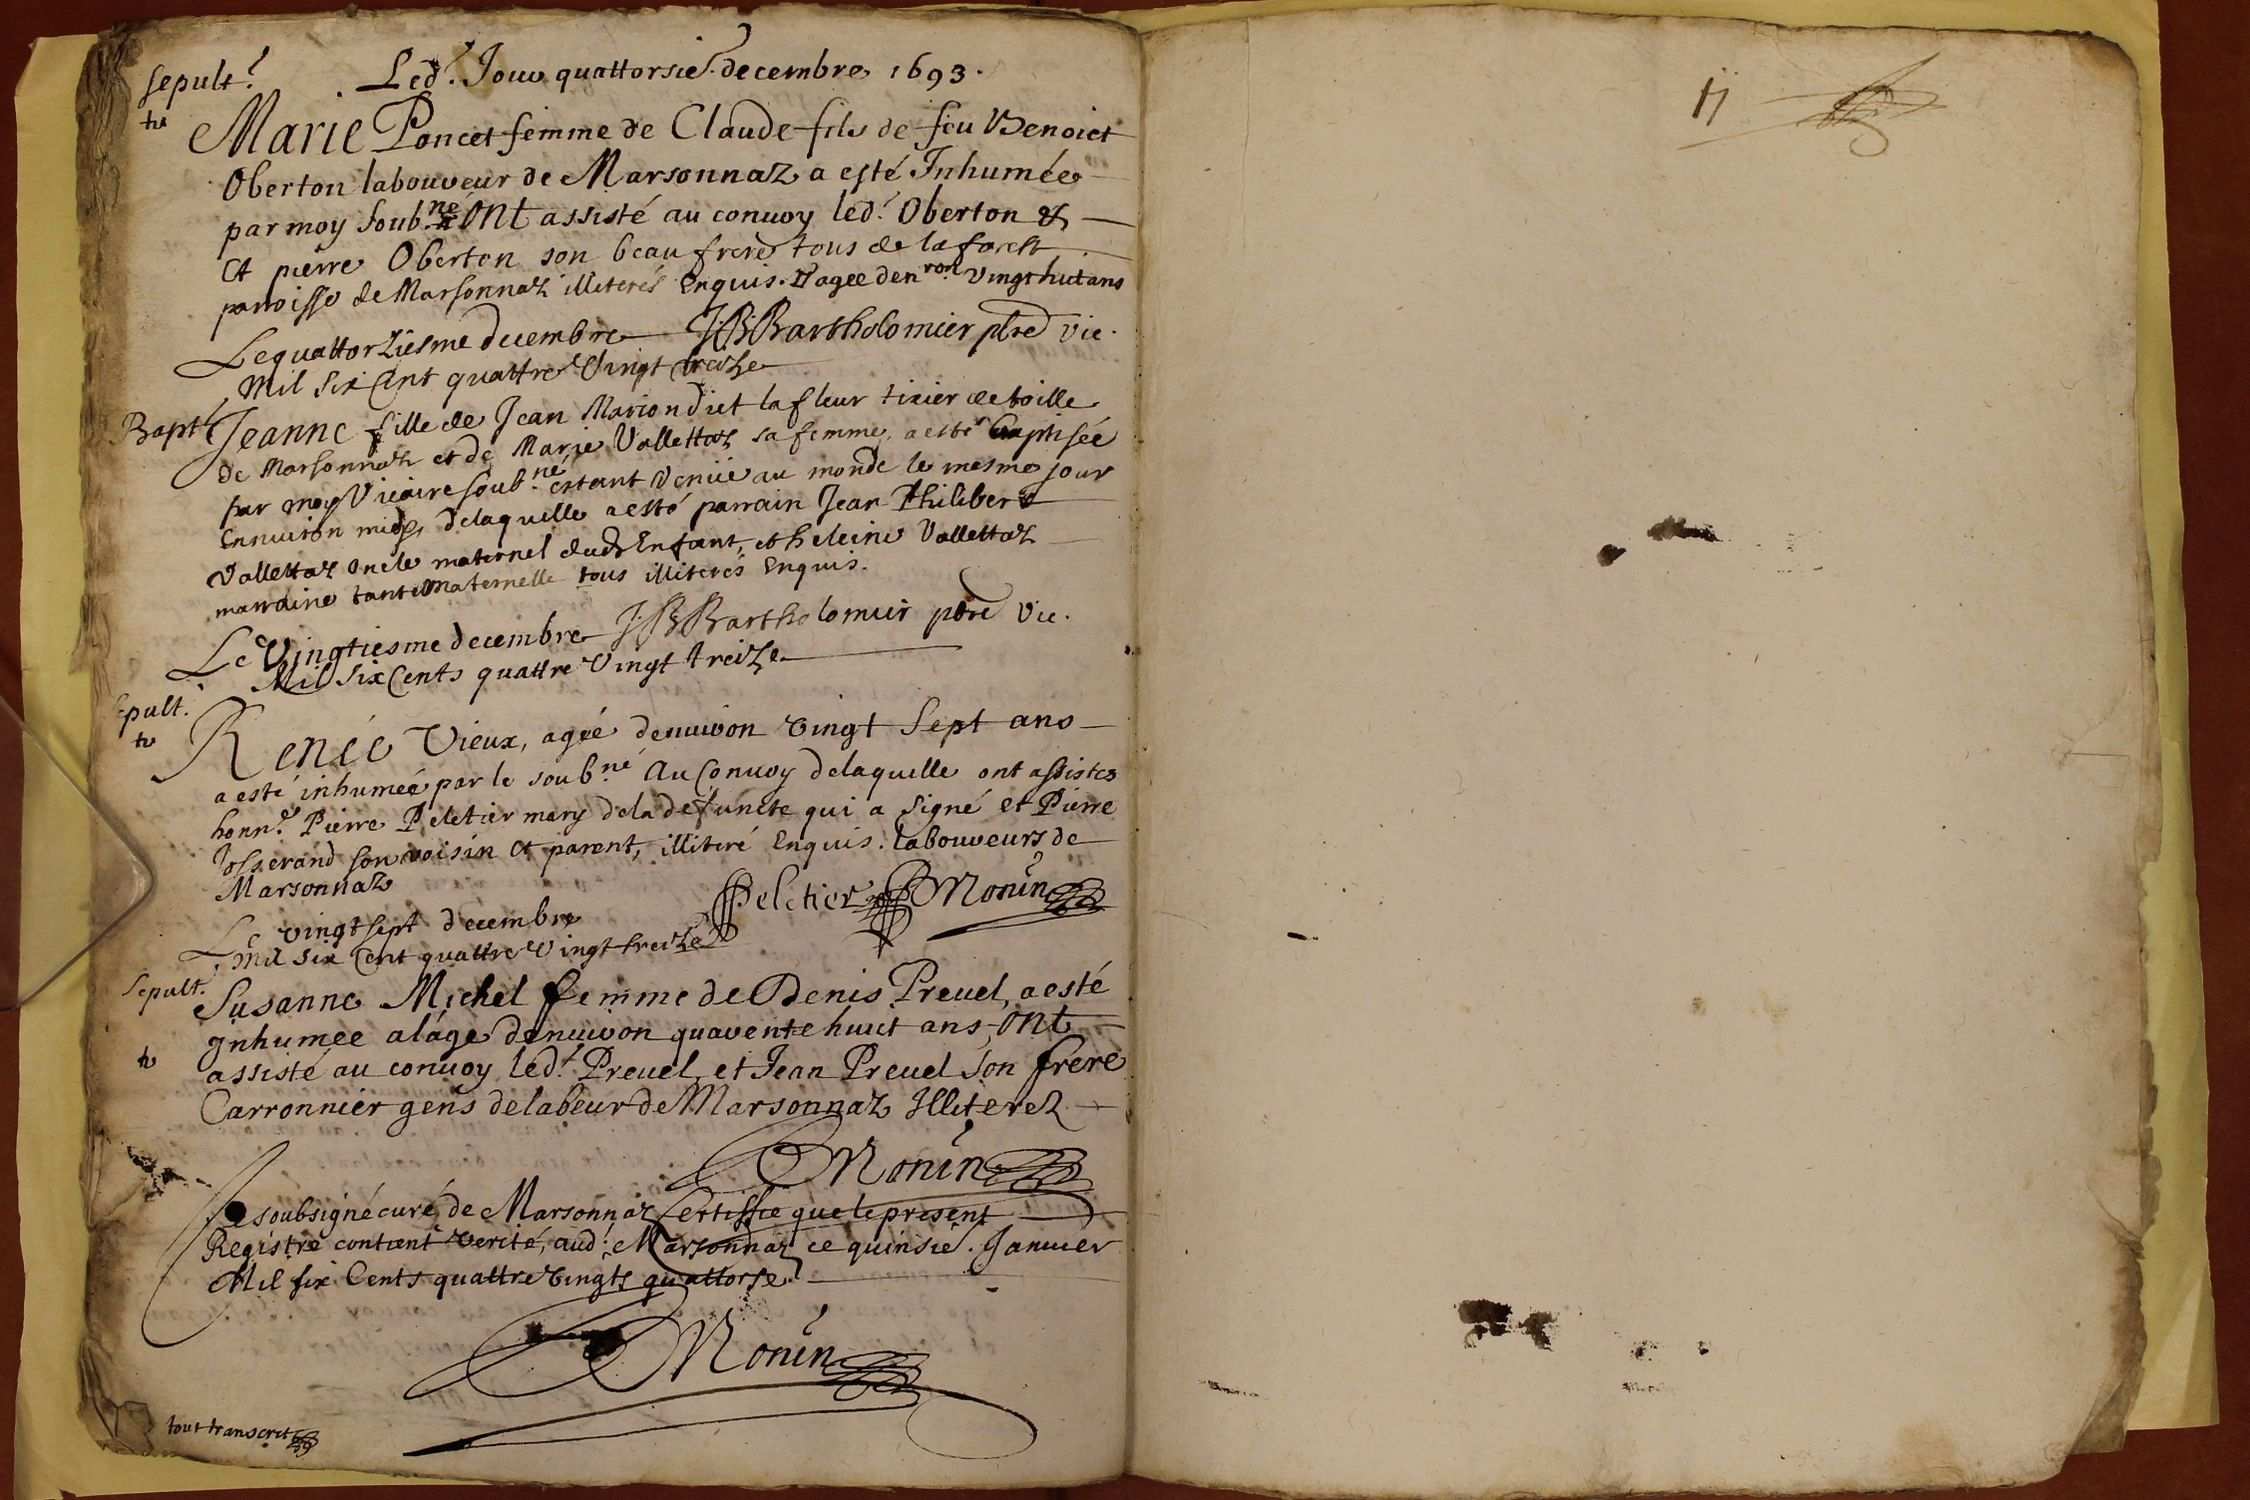 Sepult.ͬ Led.ͭ Jour quattorsie.ͤ decembre 1693.
tr
Marie Poncet femme de Claude fils de feu Benoict
Oberton laboureur de Marsonnaz a esté Inhumée
par moy soub.né Ont assisté au conuoy led.ͭ Oberton &
et pierre Oberton son beau frere tous de la forest
parroisse de Marsonnaz illiterés Enquis. & agée denron vingt huit ans
Le quattorziesme decembre J B Bartholomier pbre vic.
Mil six Cent quattre Vingt treize
Bapt. Jeanne fille de Jean Marion dict lafleur tixier de toille
de Marsonnaz et de Marie Vallettaz sa femme, a esté Baptisée
par moy Vicaire soub.né estant Venüe au monde le mesme jour
Enuiron midy, delaquelle a esté parrain Jean Philibert
Vallettaz oncle maternel dud. Enfant, et heleine Vallettaz
marraine tante maternelle tous illiterés Enquis.
J B Bartholomier pbre vic.
Le Vingtiesme decembre
Mil Six Cents quattre Vingt treize
sepult.
tr
Renée Vieux, agée denuiron vingt Sept ans
a esté inhumée par le soub.né Au Conuoy delaquelle ont assistes
honn.ͤ Pierre Peletier mary dela defuncte qui a Signé et Pierre
Josserand son voisin et parent, illiteré Enquis. laboureurs de
Marsonnaz
PPeletier Monin
Le vingt sept decembre
Mil six Cent quattre Vingt treize
Sepult.
Susanne Michel femme de Denis Preuel, a esté
tr Inhumee a láge denuiron quarente huict ans, Ont
assisté au conuoy led.ͭ Preuel, et Jean Preuel son frere
Carronnier gens de labeur de Marsonnaz Illiterez
Monin
Je soubsigné curé de Marsonnaz Certiffie que le present
Registre contient verité, aud.ͭ Marsonnaz ce quinsie. Januier
Mil six Cents quattre vingts quattorse.
Monin
tout transcrit